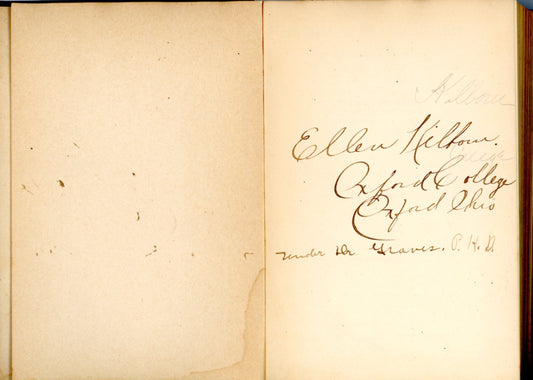 Ellen
Oxford College
Oxford Ohio
under Dr Graves. P. H. D.